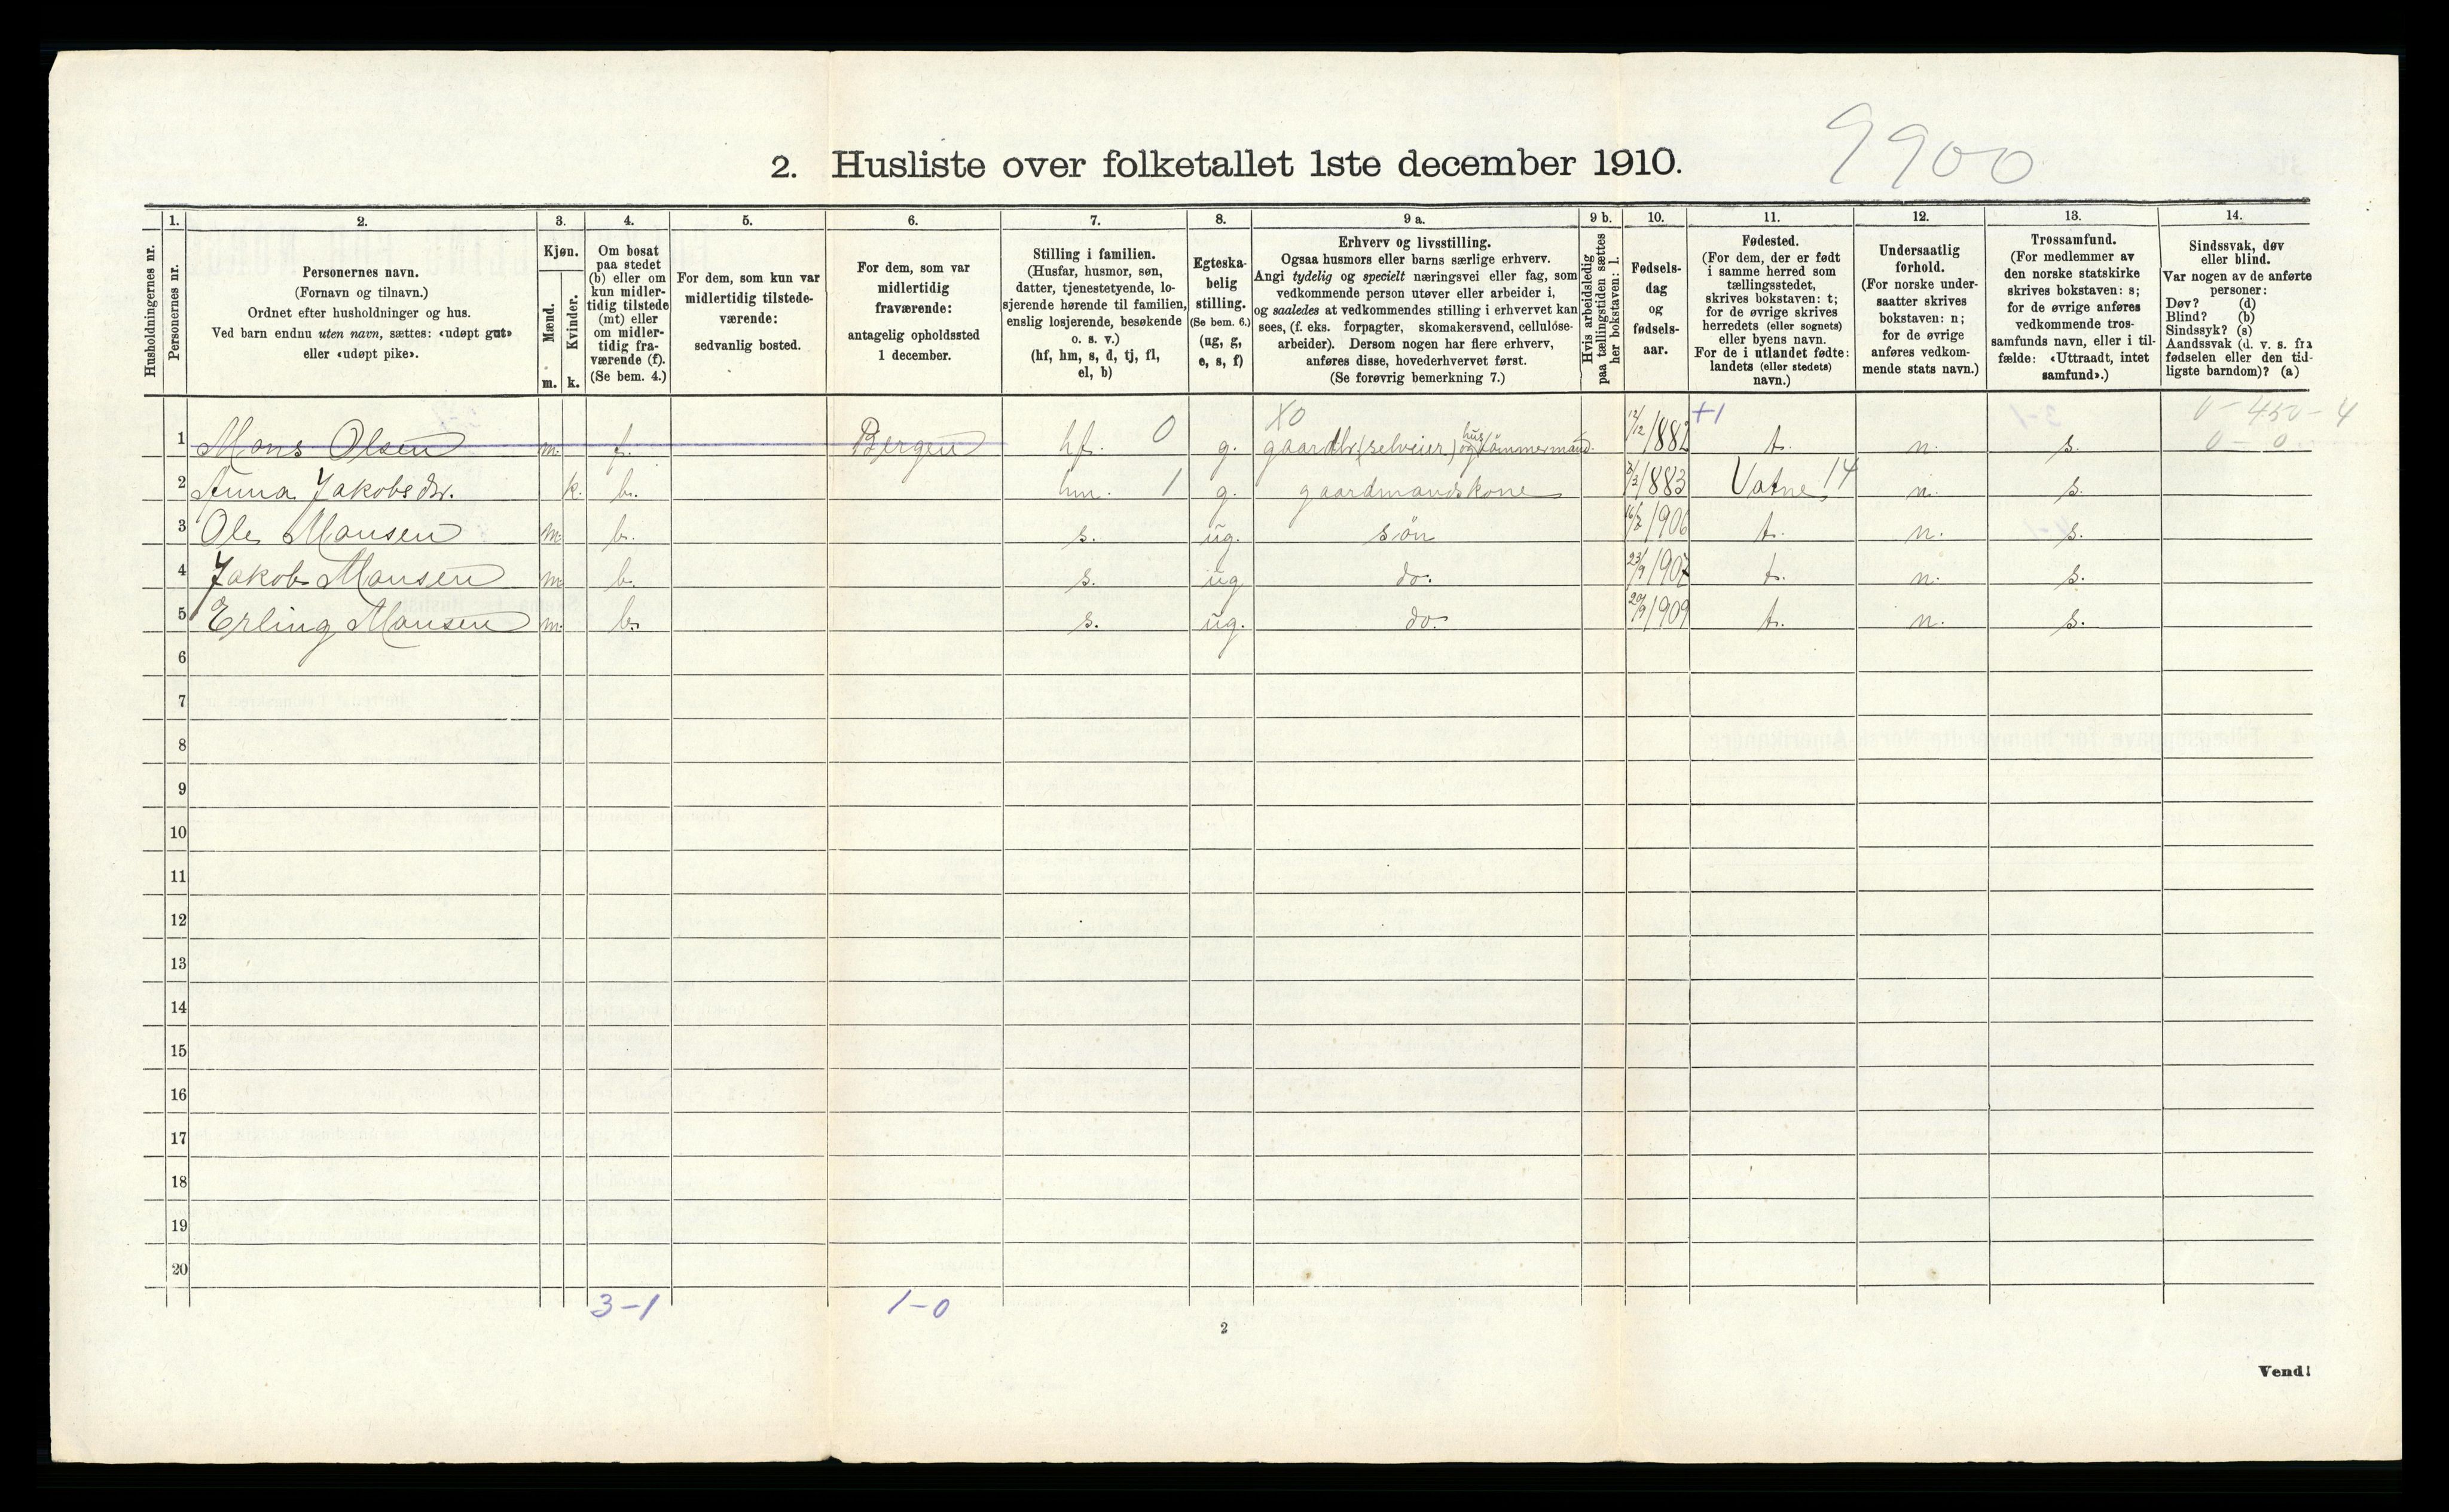 9900
2. Husliste over folketallet 1ste december 1910.
Husholdningernes nr.
1.
Personernes nr.
2.
Personernes navn.
(Fornavn og tilnavn.)
Ordnet efter husholdninger og hus.
Ved barn endnu uten navn, sættes: «udøpt gut»
eller «udøpt pike».
3.
Kjøn.
Mænd.
Kvinder.
m. k.
4.
Om bosat
paa stedet
(b) eller om
kun midler-
tidig tilstede
(mt) eller
om midler-
tidig fra-
værende (f).
(Se bem. 4.)
5.
For dem, som kun var
midlertidig tilstede-
værende:
sedvanlig bosted.
6.
For dem, som var
midlertidig
fraværende:
antagelig opholdssted
1 december.
7.
Stilling i familien.
(Husfar, husmor, søn,
datter, tjenestetyende, lo-
sjerende hørende til familien,
enslig losjerende, besøkende
o. s. v.)
(hf, hm, s, d, tj, fl,
el, b)
8.
Egteska-
belig
stilling.
(Se bem. 6.)
(ug, g,
e, s, f)
9 a.
Erhverv og livsstilling.
Ogsaa husmors eller barns særlige erhverv.
Angi tydelig og specielt næringsvei eller fag, som
vedkommende person utøver eller arbeider i,
og saaledes at vedkommendes stilling i erhvervet kan
sees, (f. eks. forpagter, skomakersvend, cellulose-
arbeider). Dersom nogen har flere erhverv,
anføres disse, hovederhvervet først.
(Se forøvrig bemerkning 7.)
9 b.
Hvis arbeidsledig
paa tællingstiden sættes
her bokstaven: l.
10.
Fødsels-
dag
og
fødsels-
aar.
11.
Fødested.
(For dem, der er født
i samme herred som
tællingsstedet,
skrives bokstaven: t;
for de øvrige skrives
herredets (eller sognets)
eller byens navn.
For de i utlandet fødte:
landets (eller stedets)
navn.)
12.
Undersaatlig
forhold.
(For norske under-
saatter skrives
bokstaven: n;
for de øvrige
anføres vedkom-
mende stats navn.)
13.
Trossamfund.
(For medlemmer av
den norske statskirke
skrives bokstaven: s;
for de øvrige anføres
vedkommende tros-
samfunds navn, eller i til-
fælde: «Uttraadt, intet
samfund».)
14.
Sindssvak, døv
eller blind.
Var nogen av de anførte
personer:
Døv? (d)
Blind? (b)
Sindssyk? (s)
Aandssvak (d. v. s. fra
fødselen eller den tid-
ligste barndom)? (a)
X0 +1 0 - 450 - 4
1 Mons Olsen m. f. Bergen hf. 0 g. gaardbr. (selveier) og hustömmermand. 12/12 1882 t. n. s. 0 - 0
2 Anna Jakobsdtr. k. b. hm. 1 g. gaardmandskone 1883 Vatne 14 n. s.
3 Ole Monsen m. b. s. ug. sön 1906 t. n. s.
4 Jakob Monsen m. b. s. ug. do. 23/9 1907 t. n. s.
5 Erling Monsen m. b. s. ug. do. 20/9 1909 t. n. s.
6
7
8
9
10
11
12
13
14
15
16
17
18
19
20
3-1 1-0
2
Vend!